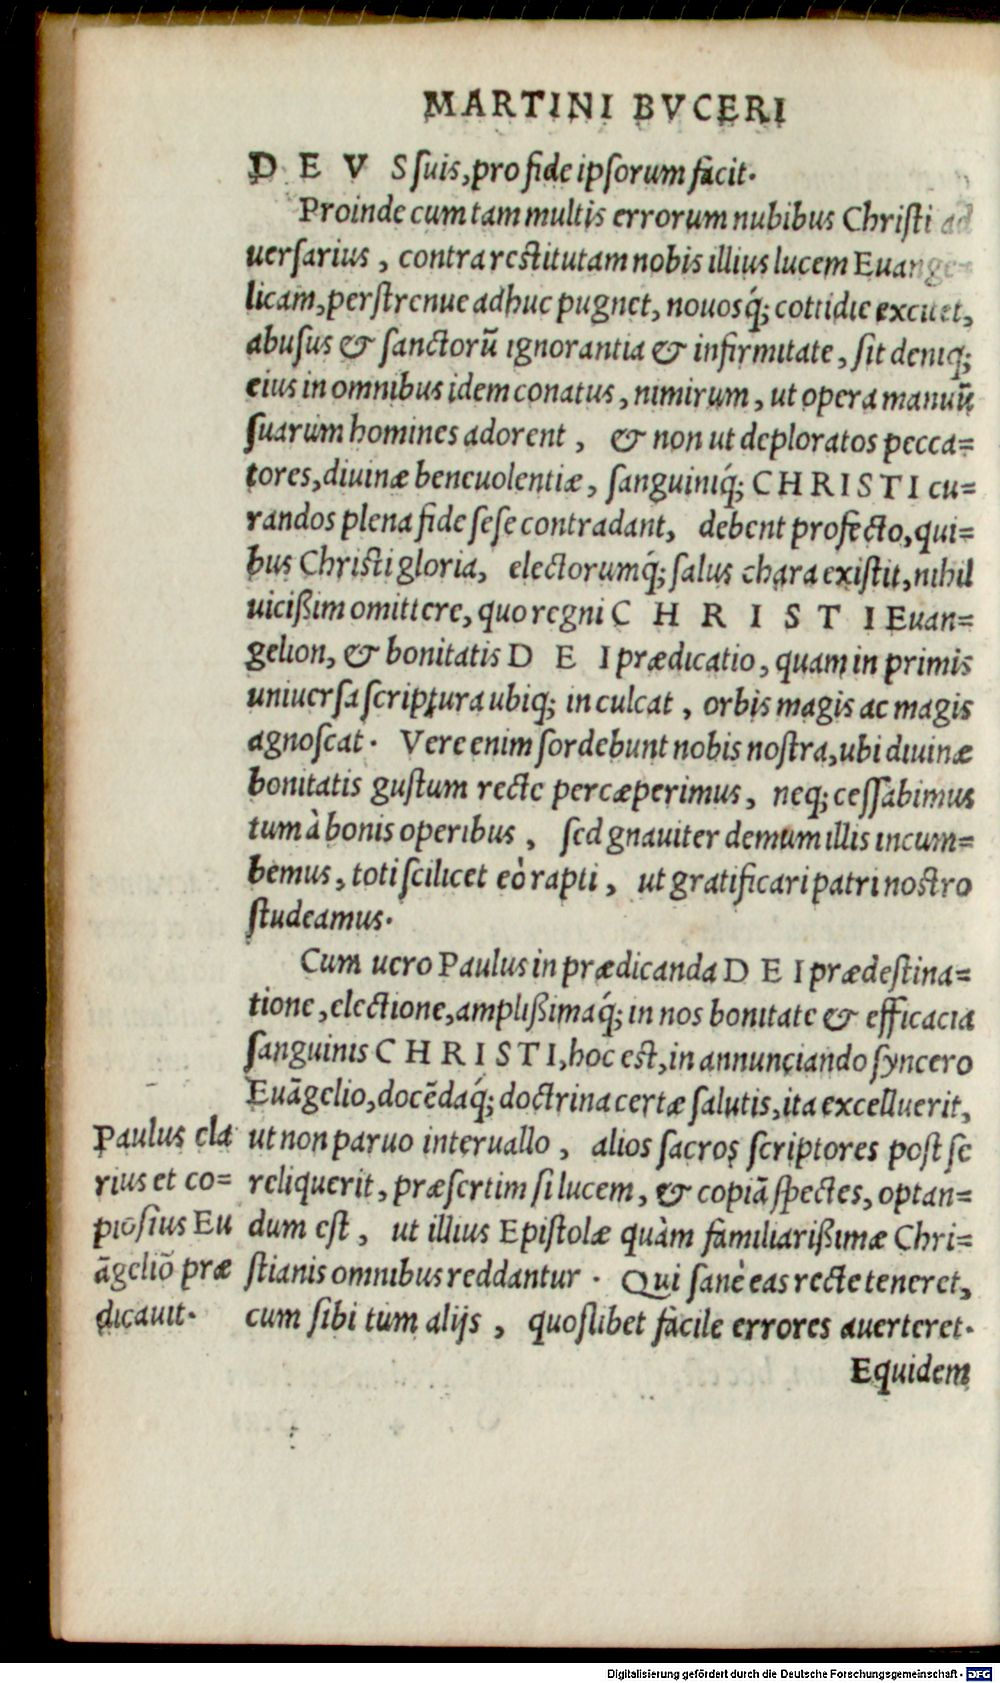 MARTINI BVCERI
D E V S suis, pro fide ipsorum facit.
Proinde cum tam multis errorum nubibus Christi ad
uersarius, contra restitutam nobis illius lucem Euange=
licam, perstrenue adhuc pugnet, nouosq́; cottidie excitet,
abusus & sanctorū ignorantia & infirmitate, sit deniq;
eius in omnibus idem conatus, nimirum, ut opera manuū
suarum homines adorent, & non ut deploratos pecca=
tores, diuinæ beneuolentiæ, sanguiniq́; CHRISTI cu=
randos plena fide sese contradant, debent profecto, qui=
bus Christi gloria, electorumq́; salus chara existit, nihil
uicißim omittere, quo regni C H R I S T I Euan=
gelion, & bonitatis D E I prædicatio, quam in primis
uniuersa scriptura ubiq; inculcat, orbis magis ac magis
agnoscat. Vere enim sordebunt nobis nostra, ubi diuinæ
bonitatis gustum recte percæperimus, neq; cessabimus
tum à bonis operibus, sed gnauiter demum illis incum=
bemus, toti scilicet eò rapti, ut gratificari patri nostro
studeamus.
Cum uero Paulus in prædicanda D E I prædestina=
tione, electione, amplißimaq́; in nos bonitate & efficacia
sanguinis CHRISTI, hoc est, in annunciando syncero
Euāgelio, docēdaq́; doctrina certæ salutis, ita excelluerit,
ut non paruo interuallo, alios sacros scriptores post se
reliquerit, præsertim si lucem, & copiā spectes, optan=
dum est, ut illius Epistolæ quàm familiarißimæ Chri=
stianis omnibus reddantur. Qui sanè eas recte teneret,
cum sibi tum alijs, quoslibet facile errores auerteret.
Equidem
Paulus cla
rius et co=
piosius Eu
āgeliō præ
dicauit.
Digitalisierung gefördert durch die Deutsche Forschungsgemeinschaft - DFG